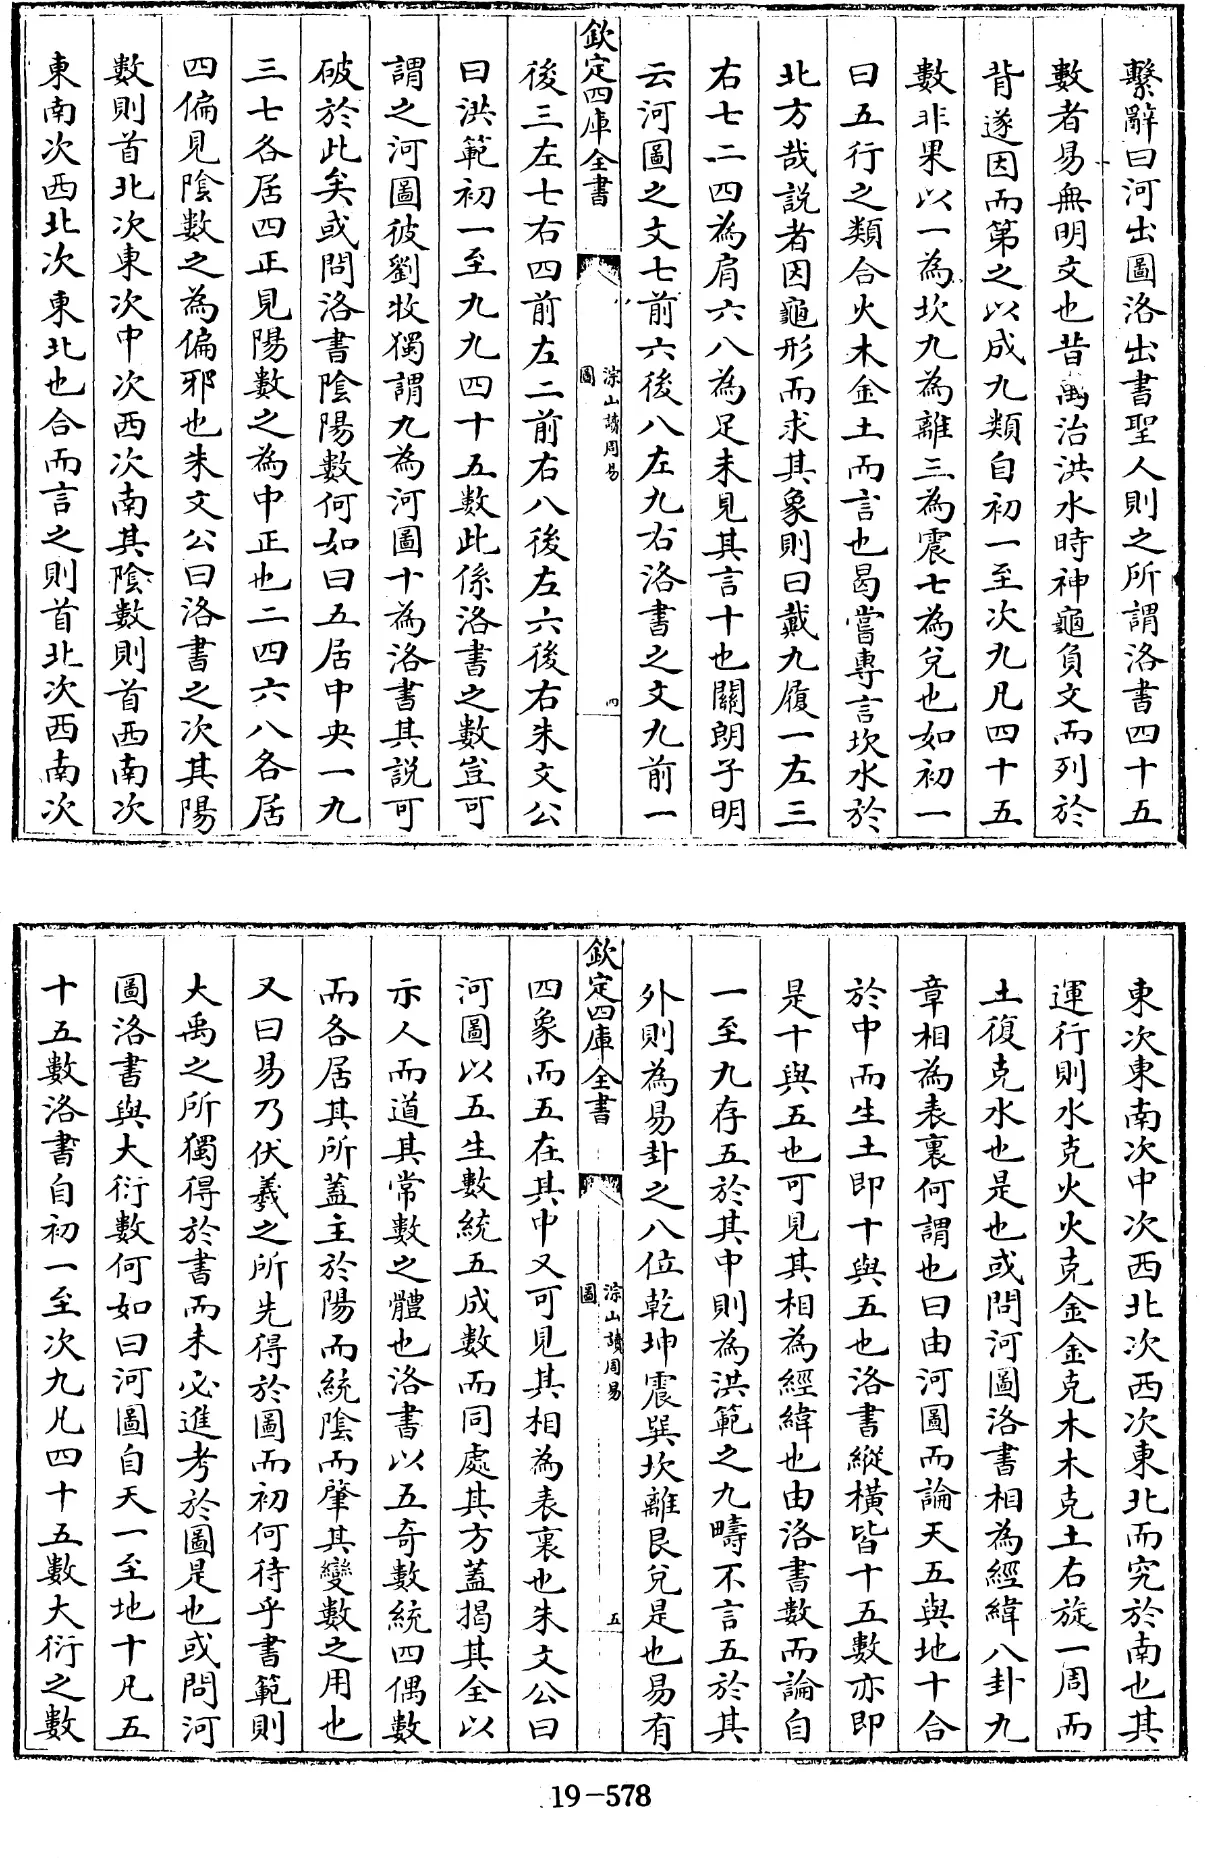 繫辭曰河出圖洛出書聖人則之所謂洛書四十五
數者易無明文也昔禹治洪水時神龜負文而列於
背遂因而第之以成九類自初一至次九凡四十五
數非果以一為坎九為離三為震七為兌也如初一
曰五行之類合火木金土而言也曷嘗專言坎水於
北方哉説者因龜形而求其象則曰戴九履一左三
右七二四為肩六八為足未見其言十也關朗子明
云河圖之文七前六後八左九右洛書之文九前一
欽定四庫全書
淙山讀周易
圖
四
後三左七右四前左二前右八後左六後右朱文公
曰洪範初一至九九四十五數此係洛書之數豈可
謂之河圖彼劉牧獨謂九為河圖十為洛書其説可
破於此矣或問洛書陰陽數何如曰五居中央一九
三七各居四正見陽數之為中正也二四六八各居
四偏見陰數之為偏邪也朱文公曰洛書之次其陽
數則首北次東次中次西次南其陰數則首西南次
東南次西北次東北也合而言之則首北次西南次
東次東南次中次西北次西次東北而究於南也其
運行則水克火火克金金克木木克土右旋一周而
土復克水也是也或問河圖洛書相為經緯八卦九
章相為表裏何謂也曰由河圖而論天五與地十合
於中而生土即十與五也洛書縱橫皆十五數亦即
是十與五也可見其相為經緯也由洛書數而論自
一至九存五於其中則為洪範之九疇不言五於其
外則為易卦之八位乾坤震巽坎離艮兌是也易有
欽定四庫全書
淙山讀周易
圖
五
四象而五在其中又可見其相為表裏也朱文公曰
河圖以五生數統五成數而同處其方蓋揭其全以
示人而道其常數之體也洛書以五奇數統四偶數
而各居其所蓋主於陽而統陰而肇其變數之用也
又曰易乃伏羲之所先得於圖而初何待乎書範則
大禹之所獨得於書而未必進考於圖是也或問河
圖洛書與大衍數何如曰河圖自天一至地十凡五
十五數洛書自初一至次九凡四十五數大衍之數
19-578